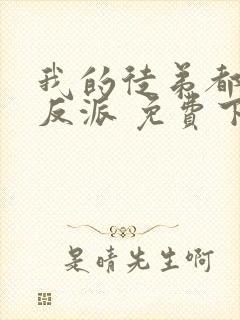 我的徒弟都
反派 免费下
是晴先生啊